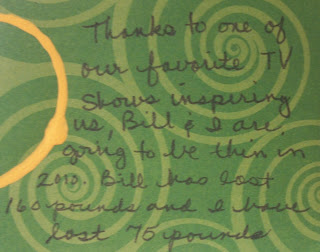 Thanks to one of
our favorite TV
shows inspiring
us, Bill & I are
going to be thin in
2010. Bill has lost
160 pounds and I have
lost 75 pounds